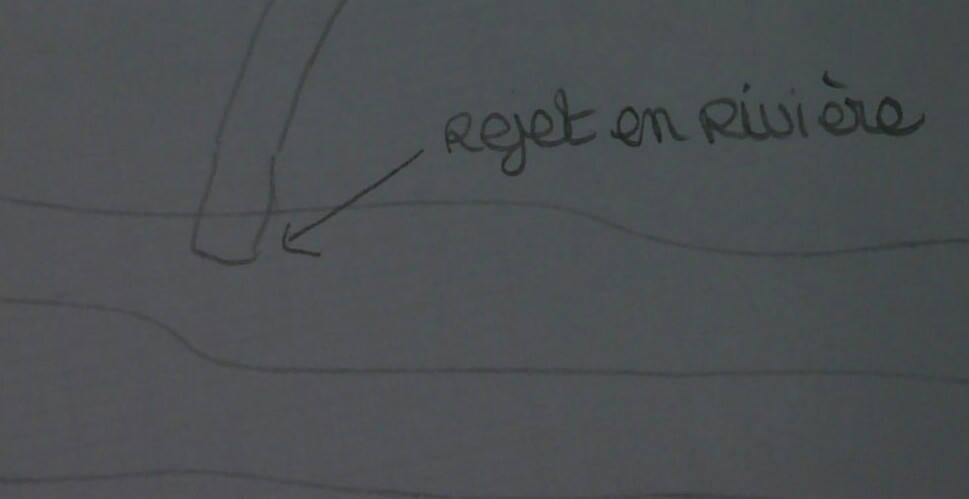 Rejet en Rivière